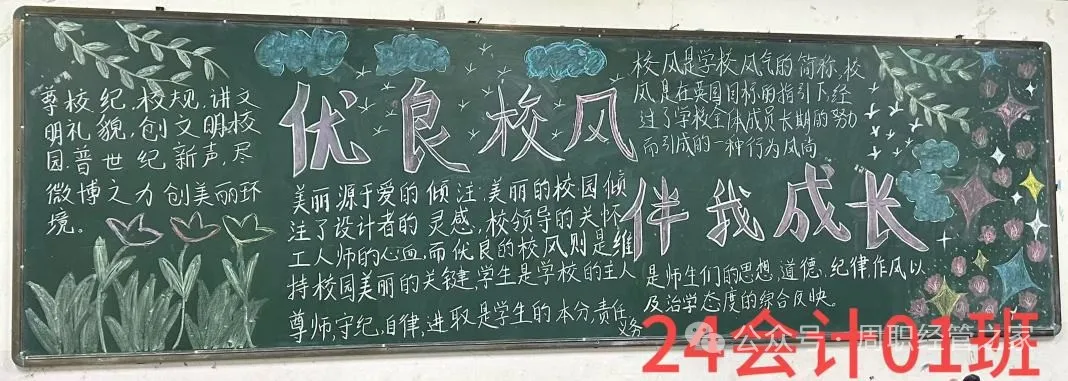 尊校纪,校规,讲文
明礼貌,创文明校
园.普世纪新声,尽
微博之力创美丽环
境。
优良校风
伴我成长
美丽源于爱的倾注.美丽的校园倾
注了设计者的灵感,校领导的关怀
工人师的心血,而优良的校风则是维
持校园美丽的关键.学生是学校的主人
尊师,守纪,自律,进取是学生的本分,责任,
义务
校风是学校风气的简称,校
风是在英国目标的指引下,经
过了学校全体成员长期的努力
而引成的一种行为风尚
是师生们的思想,道德,纪律作风以
及治学态度的综合反映。
24会计01班
公众号·周职经管之家